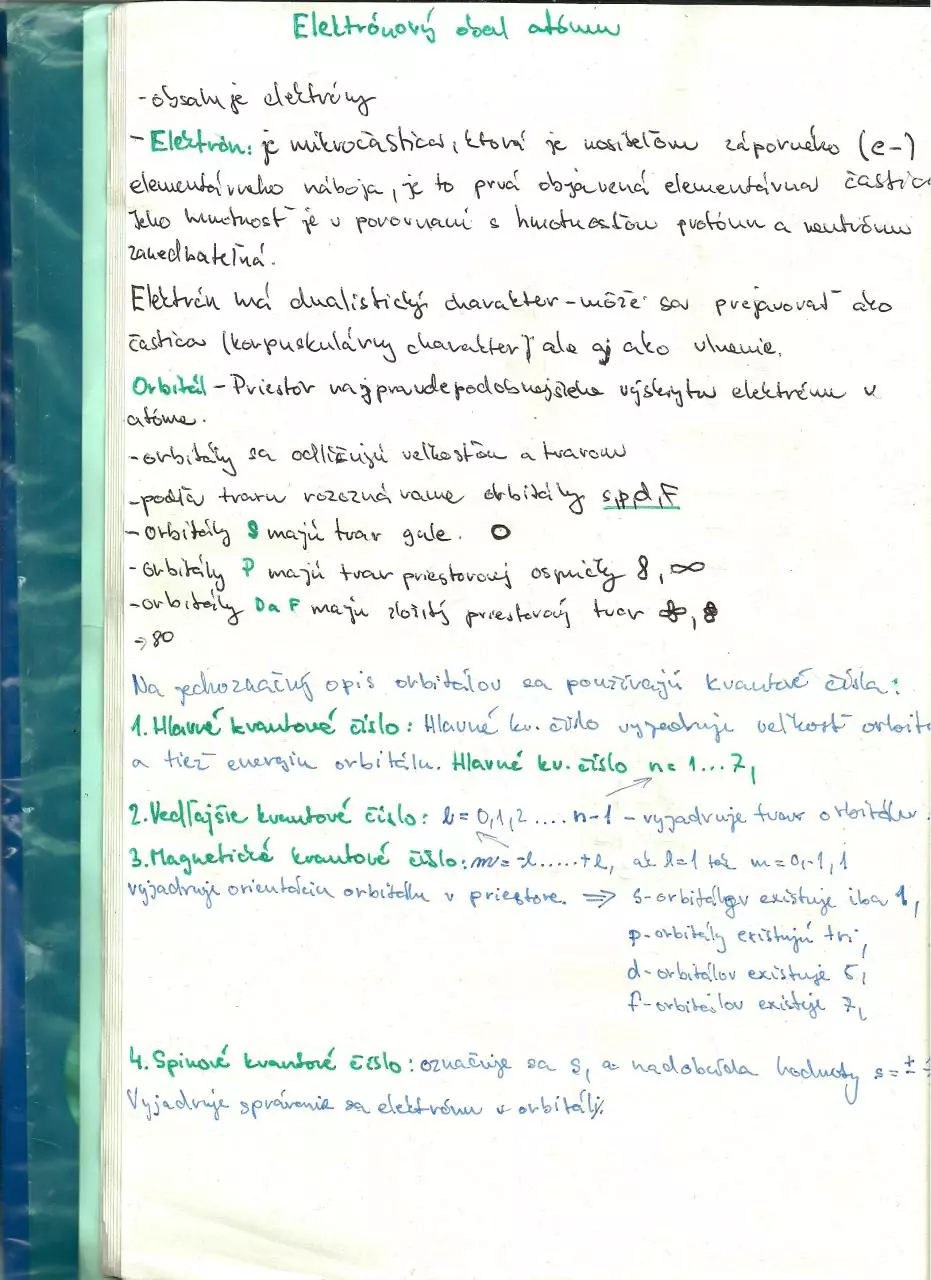 Elektrónový obal atómu
- obsahuje elektróny
- Elektrón: je mikročastica, ktorá je nositeľom záporneho (e-)
elementárneho náboja, je to prvá objavená elementárna častic
Jeho hmotnosť je v porovnaní s hmotnosťou protónu a neutrónu
zanedbateľná.
Elektrón má dualistický charakter - môže sa prejavovať ako
častica (korpuskulárny charakter) ale aj ako vlnenie.
Orbitál - Priestor najpravdepodobnejšieho výskytu elektrónu v
atóme.
- orbitály sa odlišujú veľkosťou a tvarom
- podľa tvaru rozoznávame orbitály s,p,d,F
- orbitály S majú tvar gule. O
- orbitály P majú tvar priestorovej osmičky 8, ∞
- orbitály D a F majú zložitý priestorový tvar
Na jednoznačný opis orbitálov sa používajú kvantové čísla:
1. Hlavné kvantové číslo: Hlavné kv. číslo vyjadruje veľkosť orbitá
a tiež energiu orbitálu. Hlavné kv. číslo n = 1...7,
2. Vedľajšie kvantové číslo: l = 0,1,2 .... n-1 - vyjadruje tvar orbitálu.
3. Magnetické kvantové číslo: m = -l.....+l, ak l=1 tak m=0,-1,1
vyjadruje orientáciu orbitálu v priestore. ⇒ s-orbitálov existuje iba 1,
p-orbitály existujú tri,
d-orbitálov existuje 5,
f-orbitálov existuje 7,
4. Spinové kvantové číslo: označuje sa s, a nadobúda hodnoty s = ±
Vyjadruje správanie sa elektrónu v orbitály.